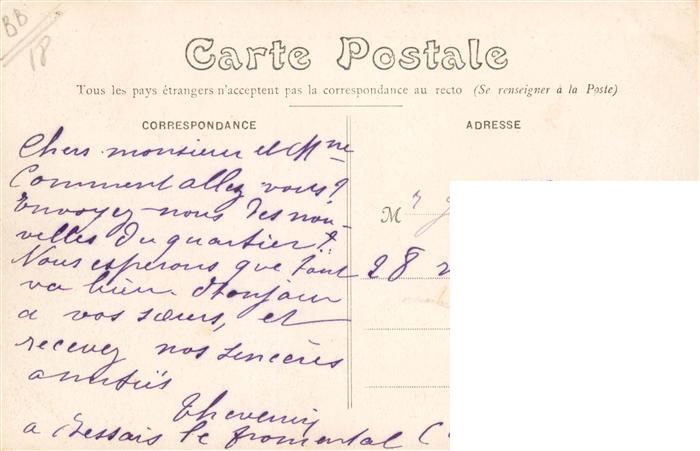 BB
18
Carte Postale
Tous les pays étrangers n'acceptent pas la correspondance au recto (Se renseigner à la Poste)
CORRESPONDANCE
Chers monsieur et Mme
Comment allez vous?
Envoyez-nous des nou-
velles du quartier?
Nous esperons que tout
va bien. Bonjour
a vos sœurs, et
recevez nos sincères
amitiés
Thevenin
a Bessais le fromental
ADRESSE
M
28